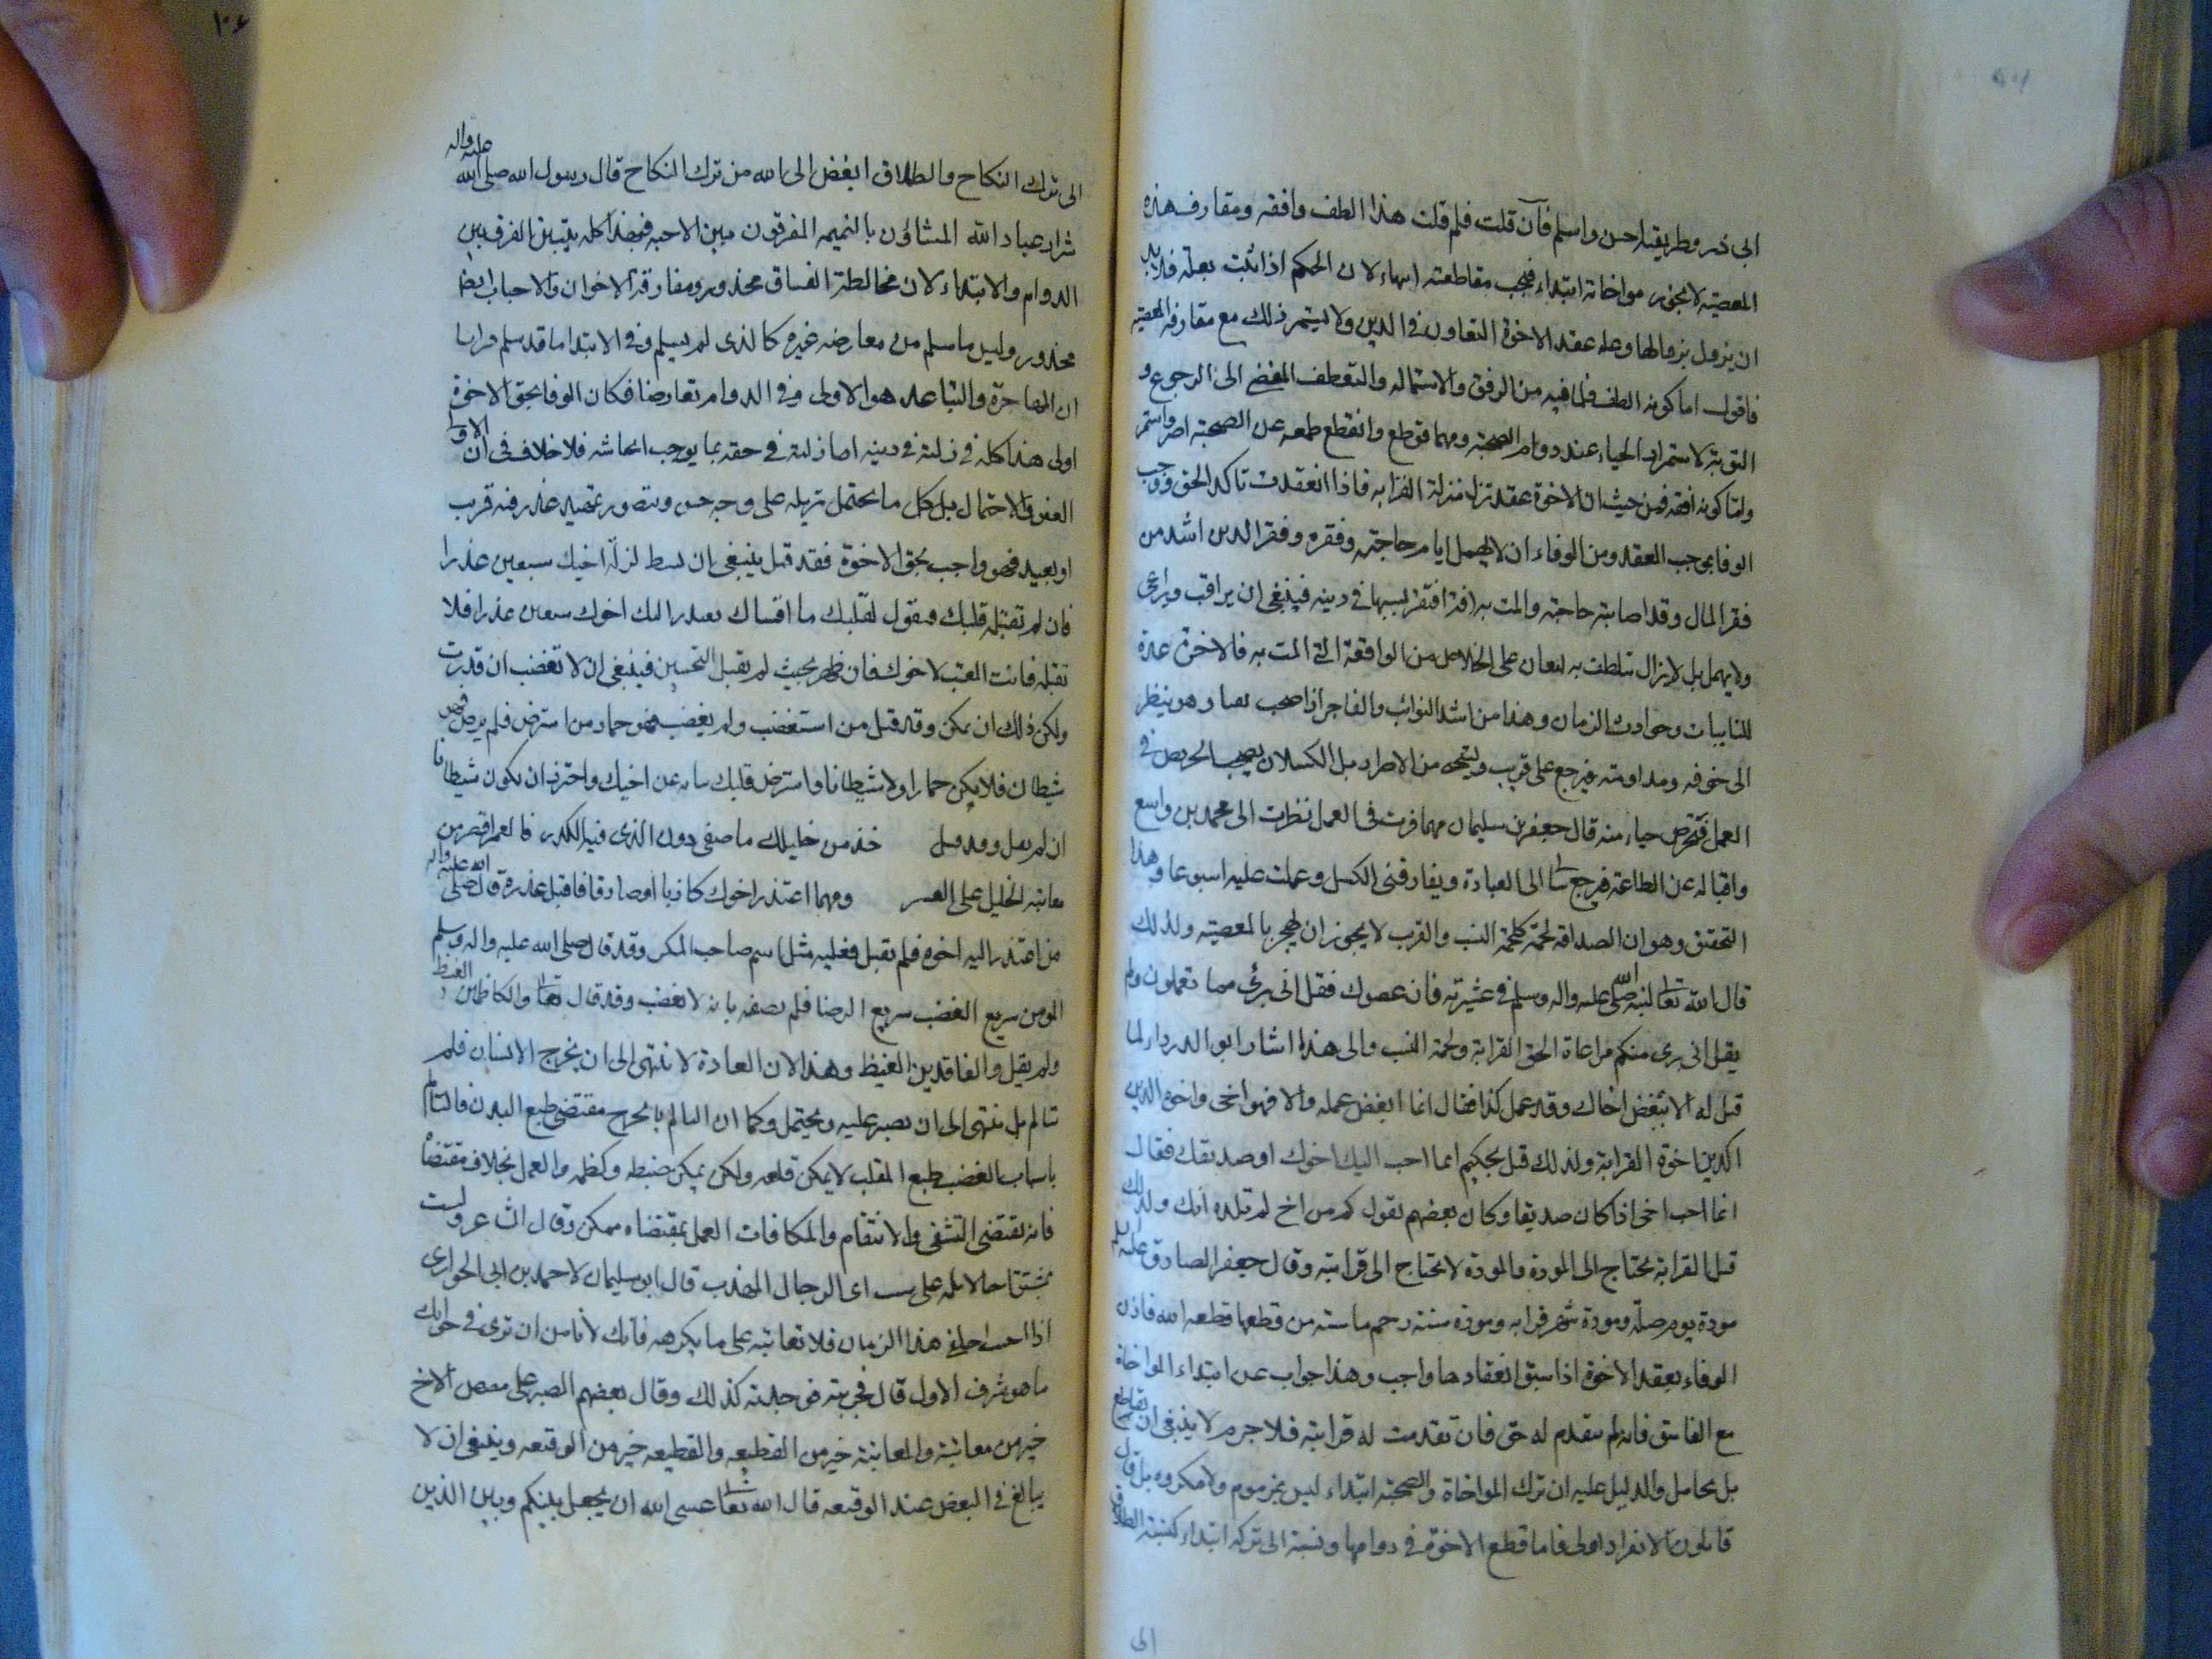 ابى ذر وطريقته احسن واسلم فان قلت فلم قلت هذا الطف وافقه ومقارف هذه
المعصيته لا يجوز مواخاته ابتداء فيجب مقاطعته انتهاء لان الحكم اذا ثبت بعلة فلا بد
ان يزول بزوالها وعلة عقد الاخوة التعاون فى الدين ولا يستمر ذلك مع مقارفة المعصية
فاقول اما كونه الطف فلما فيه من الرفق والاستماله والتعطف المفضى الى الرجوع و
التوبة لاستمرار الحياء عند دوام الصحبة ومهما قوطع وانقطع طمعه عن الصحبة اصر واستمر
واما كونه افقه فمن حيث ان الاخوة عقد تنزل منزلة القرابه فاذا انعقدت تاكد الحق ووجب
الوفا بموجب العقد ومن الوفاء ان لا يهمل ايام حاجته وفقره وفقر الدين اشد من
فقر المال وقد اصابته حاجته والمت به افة افتقر بسببها فى دينه فينبغى ان يراقب ويراعى
ولا يهمل بل لا يزال يتلطف به ليعان على الخلاص من الواقعة التى المت به فالاخوة عدة
للنايبات وحوادث الزمان وهذا من اشد النوائب والفاجر اذا صحب تقيا وهو ينظر
الى خوفه ومداومته فيرجع على قريب ويستحى من الاصرار بل الكسلان يصحب الحريص فى
العمل فيحرص حياء منه قال جعفر بن سليمان مهما فترت فى العمل نظرت الى محمد بن واسع
واقباله عن الطاعة فرجع نشاطى الى العبادة ويفارقنى الكسل وعملت عليه اسبوعا وهذا
التحقيق وهو ان الصداقه لحمة كلحمة النسب والقريب لا يجوز ان يهجر بالمعصيته ولذلك
قال الله تعالى لنبيه صلى الله عليه واله وسلم فى عشيرته فان عصوك فقل انى برئ مما تعملون ولم
يقل انى برى منكم مراعاة الحق القرابة ولحمة النسب والى هذا اشار ابو الدرداء لما
قيل له الا تبغض اخاك وقد عمل كذا فقال انما ابغض عمله والا فهو اخى واخوه الدين
اكد من اخوة القرابة ولذلك قيل لحكيم ايما احب اليك اخوك او صديقك فقال
انما احب اخى اذا كان صديقا وكان بعضهم يقول كم من اخ لم تلده امك ولذلك
قيل القرابة تحتاج الى المودة والمودة لا تحتاج الى قرابته وقال جعفر الصادق عليه السلم
مودة يوم صلة ومودة شهر قرابه ومودة سنة رحم ماسته من قطعها قطعه الله فاذن
الوفاء بعقد الاخوة اذا سبق انعقادها واجب وهذا جواب عن ابتداء المواخاة
مع الفاسق فانه لم يتقدم له حق فان تقدمت له قرابته فلا جرم لا ينبغى ان يقاطع
بل يجامل والدليل عليه ان ترك المواخاة والصحبة ابتداء ليس بمذموم ولا مكروه بل قال
قايلون الانفراد اولى فاما قطع الاخوة فى دوامها ونسبة الى تركه ابتداء كنسبة الطلاق
الى
١٠٤
الى ترك النكاح والطلاق ابغض الى الله من ترك النكاح قال رسول الله صلى الله عليه واله
شرار عباد الله المشاؤن بالنميمه المفرقون بين الاحبه فبهذا كله يتبين الفرق بين
الدوام والابتداء لان مخالطة الفساق محذور ومفارقة الاخوان والاحباب ايضا
محذور وليس ما سلم من معارضه غيره كالذى لم يسلم وفى الابتدا ما قد سلم فراينا
ان المهاجرة والتباعد هو الاولى وفى الدوام تعارضا فكان الوفا بحق الاخوة
اولى هذا كله فى زلته فى دينه اما زلته فى حقه بما يوجب ايحاشه فلا خلاف فى ان الاولى
العفو والاحتمال بل كل ما يحتمل تنزيله على وجه حسن ويتصور تمهيد عذر فيه قريب
او بعيد فهو واجب بحق الاخوة فقد قيل ينبغى ان تبسط لزلة اخيك سبعين عذرا
فان لم تقبله قلبك فتقول لقلبك ما اقساك يعتذر اليك اخوك سبعين عذرا فلا
تقبله فانت المعتب لا اخوك فان ظهر بحيث لم يقبل التحسين فينبغى ان لا تغضب ان قدرت
ولكن ذلك ان يمكن وقد قيل من استغضب ولم يغضب فهو حمار ومن استرضى فلم يرض فهو
شيطان فلا يكن حمارا ولا شيطانا واسترض قلبك نيابة عن اخيك واحترز ان يكون شيطانا
ان لم يقبل وقد قيل خذ من خليلك ما صفى دون الذى فيه الكدر فالعمر اقصر من
معاتبة الخليل على الغير ومهما اعتذر اخوك كاذبا او صادقا فاقبل عذره قال صلى الله عليه واله
من اعتذر اليه اخوه فلم يقبل فعليه مثل اثم صاحب المكس وقد قال صلى الله عليه واله وسلم
المومن سريع الغضب سريع الرضا فلم يصفه بانه لا يغضب وقد قال تعالى والكاظمين الغيظ
ولم يقل والفاقدين الغيظ وهذا لان العادة لا تنتهى الى ان يخرج الانسان فلم
يتالم بل ينتهى الى ان يصبر عليه ويحتمل وكما ان التالم بالجرح مقتضى طبع البدن فالتالم
باسباب الغضب طبع القلب لا يمكن قلعه ولكن يمكن ضبطه وكظمه والعمل بخلاف مقتضاه
فانه يقتضى التشفى والانتقام والمكافات العمل بمقتضاه ممكن وقال الشاعر ولست
بمستبق اخا لا تلمه على شعث اى الرجال المهذب قال ابو سليمان لاحمد بن ابى الحوارى
اذا احببت احدا فى هذا الزمان فلا تعاتبه على ما يكرهه فانك لا تامن ان ترى فى جوابك
ما هو شر من الاول قال فجربته فوجدته كذلك وقال بعضهم الصبر على مضض الاخ
خير من معاتبته والمعاتبة خير من القطيعه والقطيعه خير من الوقيعه وينبغى ان لا
يبالغ فى البغض عند الوقيعه قال الله تعالى عسى الله ان يجعل بينكم وبين الذين